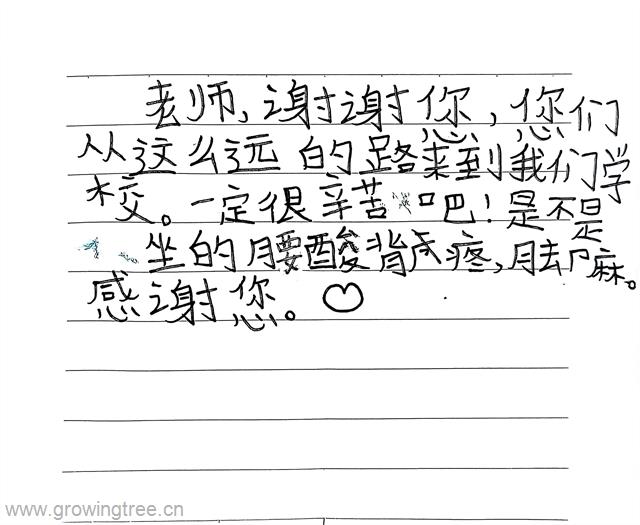 老师,谢谢您,您们
从这么远的路来到我们学
校。一定很辛苦吧!是不是
坐的腰酸背疼,脚麻。
感谢您。♡
www.growingtree.cn